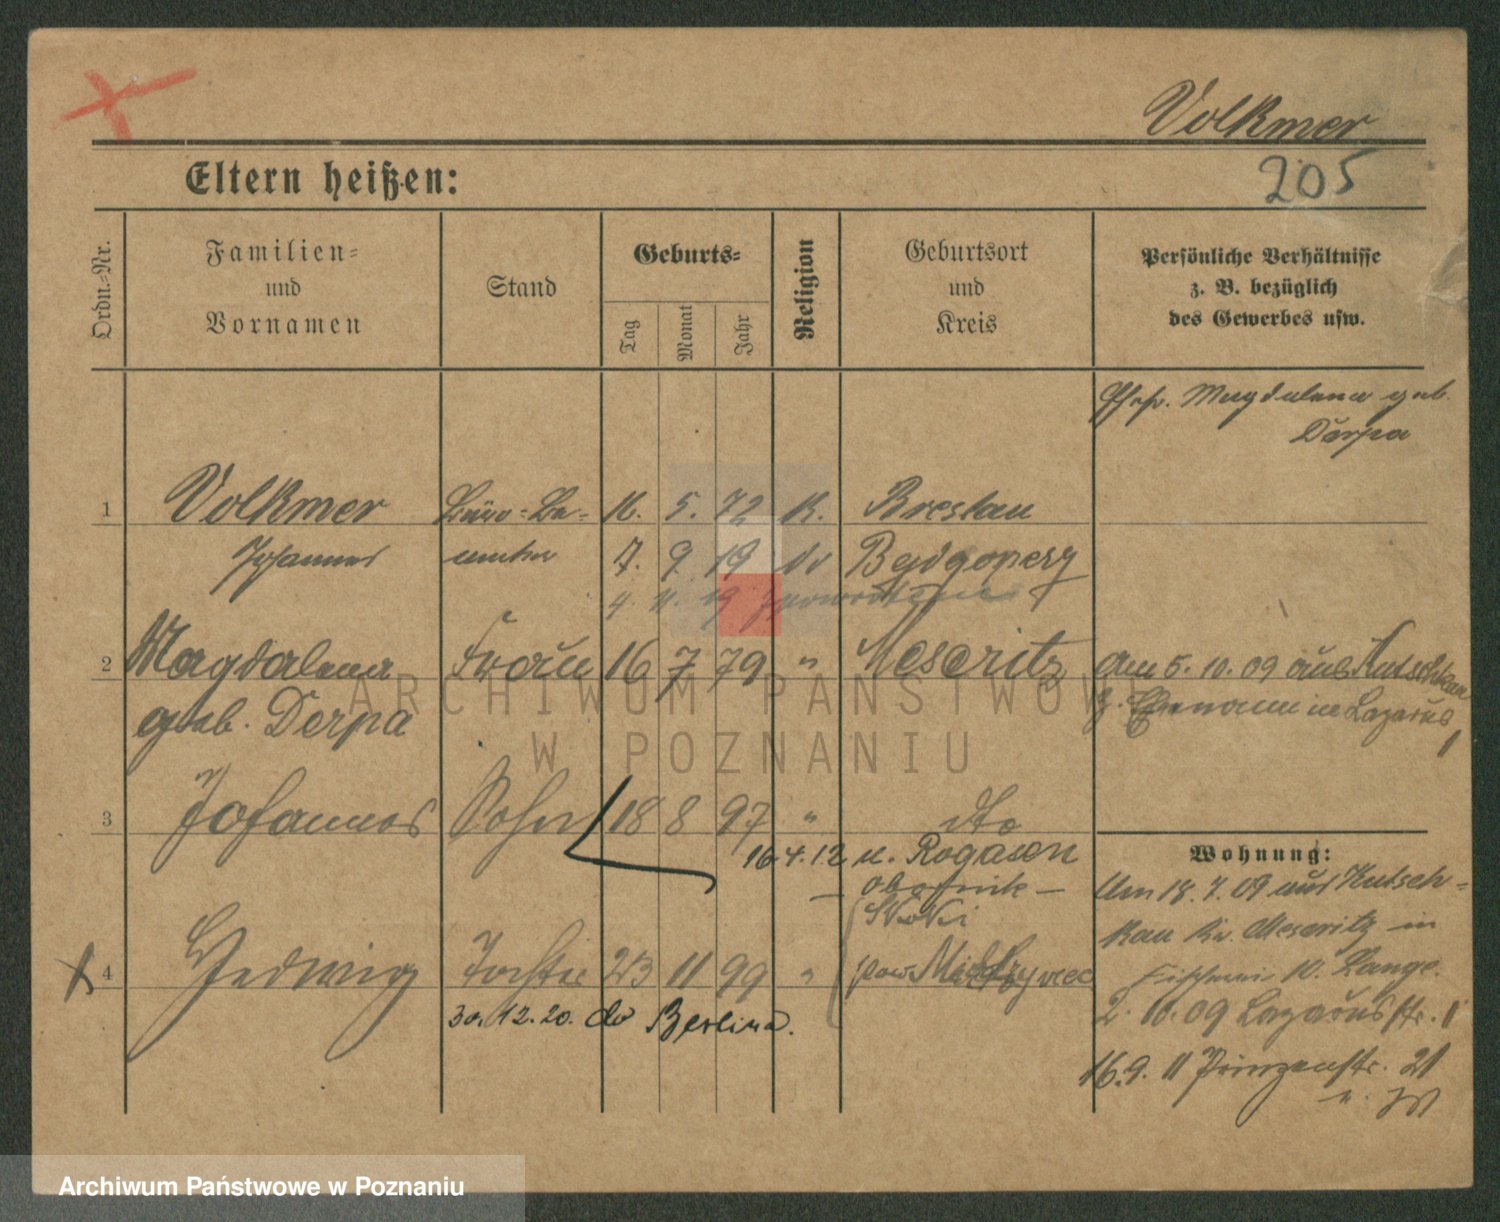 Volkmer
205
Eltern heißen:
Ordn.-Nr.
Familien-
und
Vornamen
Stand
Geburts-
Tag
Monat
Jahr
Religion
Geburtsort
und
Kreis
Persönliche Verhältnisse
z. B. bezüglich
des Gewerbes usw.
Ehefr. Magdalena geb.
Derpa
1 Volkmer Büro-Be- 16. 5. 72 K. Breslau
Johannes amter 7. 9. 19 do Bydgoszcz
4. 11. 19
2 Magdalena Frau 16 7 79 " Meseritz Am 5. 10. 09 aus Kutschkau
geb. Derpa z. Ehemann in Lazarus
3 Johannes Sohn 18 8 97 " dto
16 4. 12 n. Rogasen
Wohnung:
Obornik
Am 18. 7. 09 aus Kutsch-
kau Kr. Meseritz in
4 Hedwig Tochter 23 11 99 " pow.
10. Lange.
30. 12. 20. do Berlina.
2. 10. 09 Lazarusstr. 1
16. 9. 11 Prinzenstr. 21
ARCHIWUM PAŃSTWOWE
W POZNANIU
Archiwum Państwowe w Poznaniu